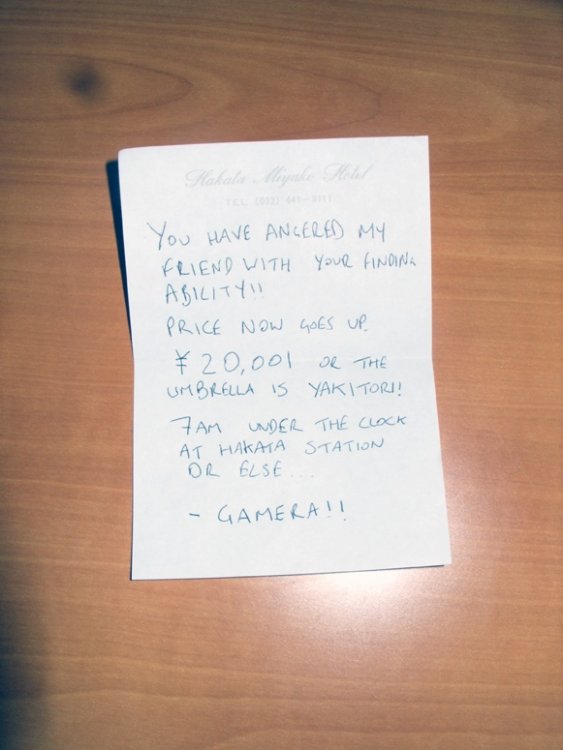 Hakata Miyako Hotel
TEL (092) 441-3111
YOU HAVE ANGERED MY
FRIEND WITH YOUR FINDING
ABILITY!!
PRICE NOW GOES UP.
¥20,001 OR THE
UMBRELLA IS YAKITORI!
7AM UNDER THE CLOCK
AT HAKATA STATION
OR ELSE...
- GAMERA!!